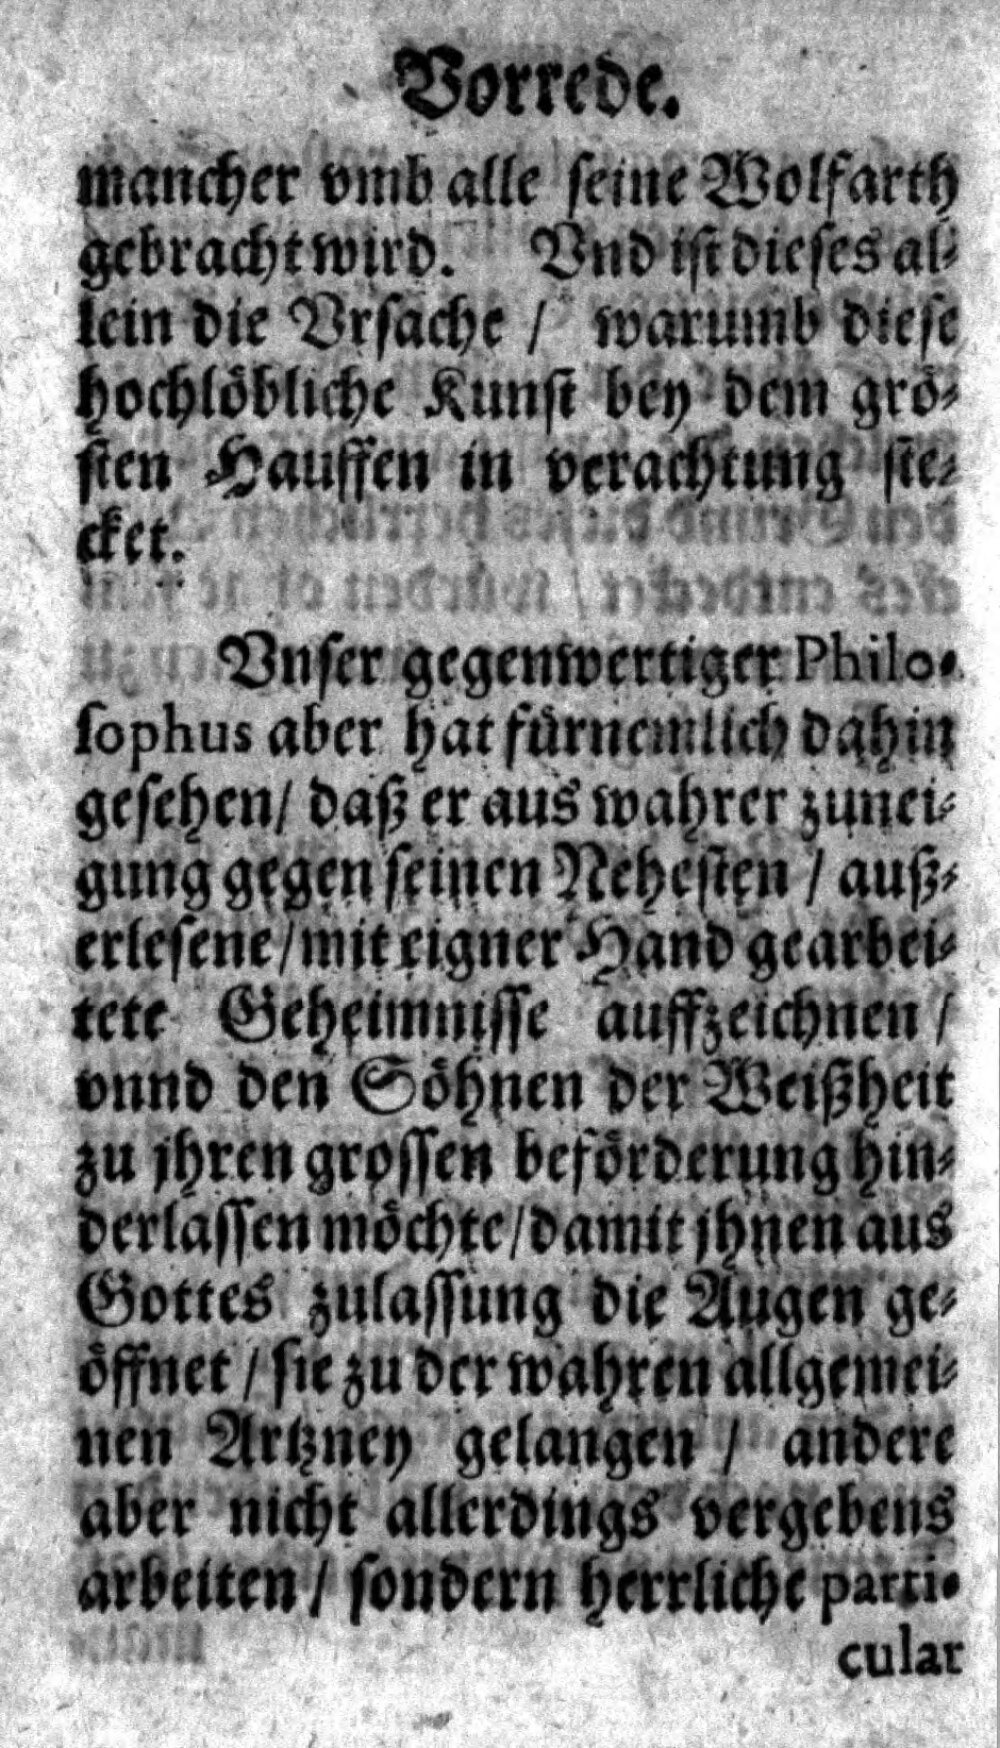 Vorrede.
mancher vmb alle ſeine Wolfarth
gebracht wird. Vnd iſt dieſes al⸗
lein die Vrſache / warumb dieſe
hochlöbliche Kunſt bey dem grö⸗
ſten Hauffen in verachtung ſte⸗
cket.
Vnſer gegenwertiger Philo-
ſophus aber hat fürnemlich dahin
geſehen/ daß er aus wahrer zunei⸗
gung gegen ſeinen Neheſten / auß⸗
erleſene/mit eigner Hand gearbei⸗
tete Geheimniſſe auffzeichnen /
vnnd den Söhnen der Weißheit
zu jhren groſſen beförderung hin⸗
derlaſſen möchte/damit jhnen aus
Gottes zulaſſung die Augen ge⸗
öffnet / ſie zu der wahren allgemei⸗
nen Artzney gelangen / andere
aber nicht allerdings vergebens
arbeiten / ſondern herrliche parti-
cular